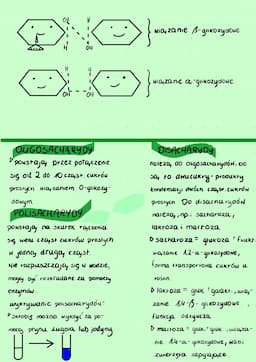 wiązanie β-glikozydowe
wiązanie α-glikozydowe
OLIGOSACHARYDY
powstają przez połączenie
się od 2 do 10 cząst. cukrów
prostych wiązaniem O-glikozy-
dowym
POLISACHARYDY
powstają na skutek łączenia
się wielu cząst. cukrów prostych
w jedną długą cząst.
Nie rozpuszczają się w wodzie,
mogą być rozkładane za pomocą
enzymów.
wykrywanie polisacharydów:
skrobię można wykryć za po-
mocą płynu Lugola lub jodyny
DISACHARYDY
należą do oligosacharydów. Są
są to dwucukry - produkty
kondensacji dwóch cząst. cukrów
prostych. Do disacharydów
należą, np.: sacharoza,
laktoza i maltoza
sacharoza =
wiązanie 1,2-α-glikozydowe,
forma transportowa cukrów u
roślin.
laktoza =
zanie 1,4-β-glikozydowe,
funkcja odżywcza
maltoza =
nie 1,4-α-glikozydowe,